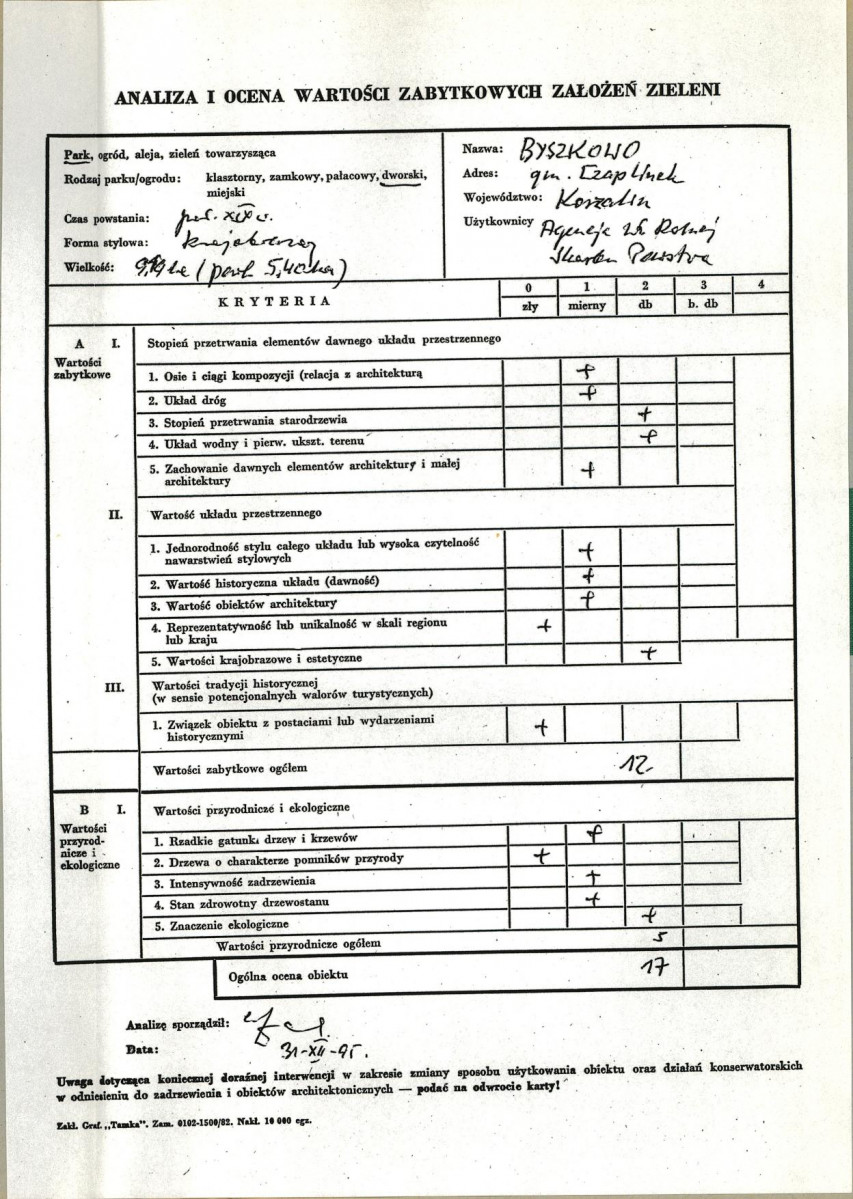 ANALIZA I OCENA WARTOŚCI ZABYTKOWYCH ZAŁOŻEŃ ZIELENI
Park, ogród, aleja, zieleń towarzysząca
Rodzaj parku/ogrodu: klasztorny, zamkowy, pałacowy, dworski,
miejski
Czas powstania: poł. XIX w.
Forma stylowa: krajobrazowy
Wielkość: (park 5,40 ha)
Nazwa: BYSZKOWO
Adres: gm. Czaplinek
Województwo: Koszalin
Użytkownicy Agencja Wł. Rolnej
Skarbu Państwa
KRYTERIA
0 1 2 3 4
zły mierny db b. db
A I. Stopień przetrwania elementów dawnego układu przestrzennego
Wartości
zabytkowe
1. Osie i ciągi kompozycji (relacja z architekturą +
2. Układ dróg +
3. Stopień przetrwania starodrzewia +
4. Układ wodny i pierw. ukszt. terenu +
5. Zachowanie dawnych elementów architektury i małej
architektury +
II. Wartość układu przestrzennego
1. Jednorodność stylu całego układu lub wysoka czytelność
nawarstwień stylowych +
2. Wartość historyczna układu (dawność) +
3. Wartość obiektów architektury +
4. Reprezentatywność lub unikalność w skali regionu
lub kraju +
5. Wartości krajobrazowe i estetyczne +
III. Wartości tradycji historycznej
(w sensie potencjonalnych walorów turystycznych)
1. Związek obiektu z postaciami lub wydarzeniami
historycznymi +
Wartości zabytkowe ogółem 12
B I. Wartości przyrodnicze i ekologiczne
Wartości
przyrod-
nicze i
ekologiczne
1. Rzadkie gatunki drzew i krzewów +
2. Drzewa o charakterze pomników przyrody +
3. Intensywność zadrzewienia +
4. Stan zdrowotny drzewostanu +
5. Znaczenie ekologiczne +
Wartości przyrodnicze ogółem 5
Ogólna ocena obiektu 17
Analizę sporządził:
Data: 31-XII-95.
Uwaga dotycząca koniecznej doraźnej interwencji w zakresie zmiany sposobu użytkowania obiektu oraz działań konserwatorskich
w odniesieniu do zadrzewienia i obiektów architektonicznych — podać na odwrocie karty!
Zakł. Graf. „Tamka". Zam. 0102-1500/82. Nakł. 10 000 egz.